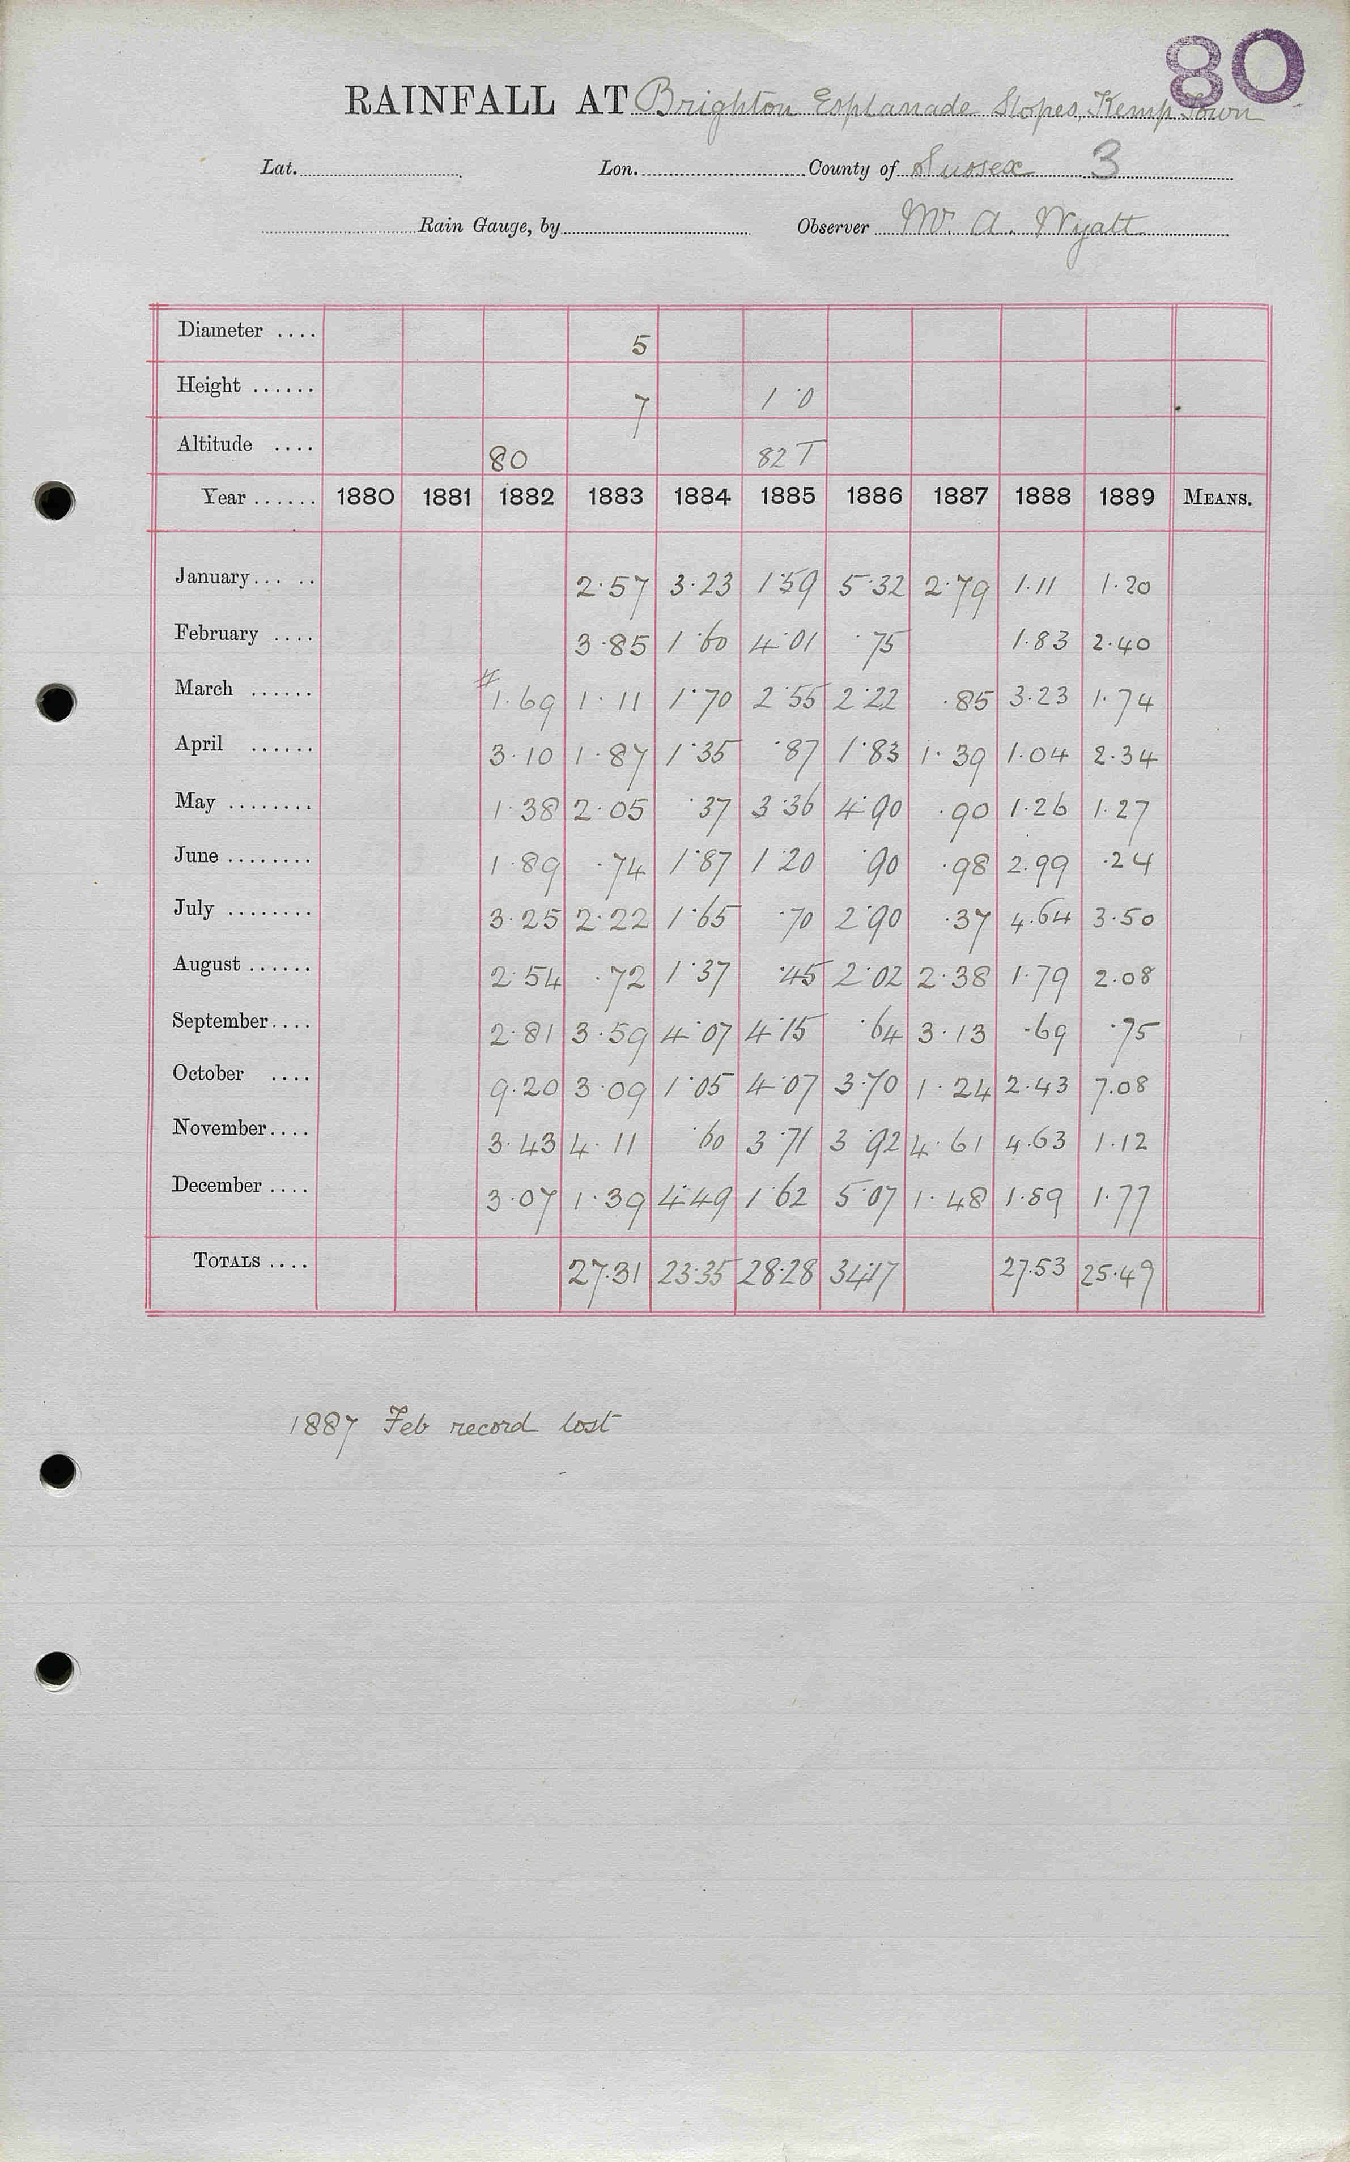 80
RAINFALL AT Brighton Esplanade Slopes, Kemp Town
Lat. Lon. County of Sussex 3
Rain Gauge, by Observer Mr. A. Wyatt
Diameter .... 5
Height ...... 7 1·0
Altitude .... 80 82 T
Year ...... 1880 1881 1882 1883 1884 1885 1886 1887 1888 1889 MEANS.
January... .. 2·57 3·23 1·59 5·32 2·79 1·11 1·20
February .... 3·85 1·60 4·01 ·75 1·83 2·40
March ...... #1·69 1·11 1·70 2·55 2·22 ·85 3·23 1·74
April ...... 3·10 1·87 1·35 ·87 1·83 1·39 1·04 2·34
May ........ 1·38 2·05 ·37 3·36 4·90 ·90 1·26 1·27
June ........ 1·89 ·74 1·87 1·20 ·90 ·98 2·99 ·24
July ........ 3·25 2·22 1·65 ·70 2·90 ·37 4·64 3·50
August ...... 2·54 ·72 1·37 ·45 2·02 2·38 1·79 2·08
September.... 2·81 3·59 4·07 4·15 ·64 3·13 ·69 ·75
October .... 9·20 3·09 1·05 4·07 3·70 1·24 2·43 7·08
November.... 3·43 4·11 ·60 3·71 3·92 4·61 4·63 1·12
December .... 3·07 1·39 4·49 1·62 5·07 1·48 1·89 1·77
TOTALS .... 27·31 23·35 28·28 34·17 27·53 25·49
1887 Feb record lost